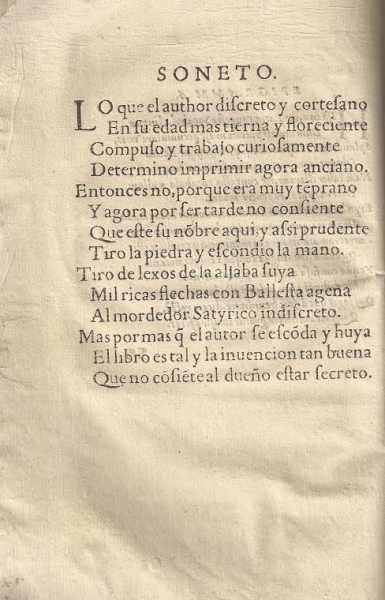 SONETO.
LO que el author discreto y cortesano
En su edad mas tierna y floreciente
Compuso y trabajo curiosamente
Determino imprimir agora anciano.
Entonces no, porque era muy tẽprano
Y agora por ser tarde no consiente
Que este su nõbre aqui, y assi prudente
Tiro la piedra y escondio la mano.
Tiro de lexos de la aljaba suya
Mil ricas flechas con Ballesta agena
Al mordedor Satyrico indiscreto.
Mas por mas q̃ el autor se escõda y huya
El libro es tal y la inuencion tan buena
Que no cõsiẽte al dueño estar secreto.